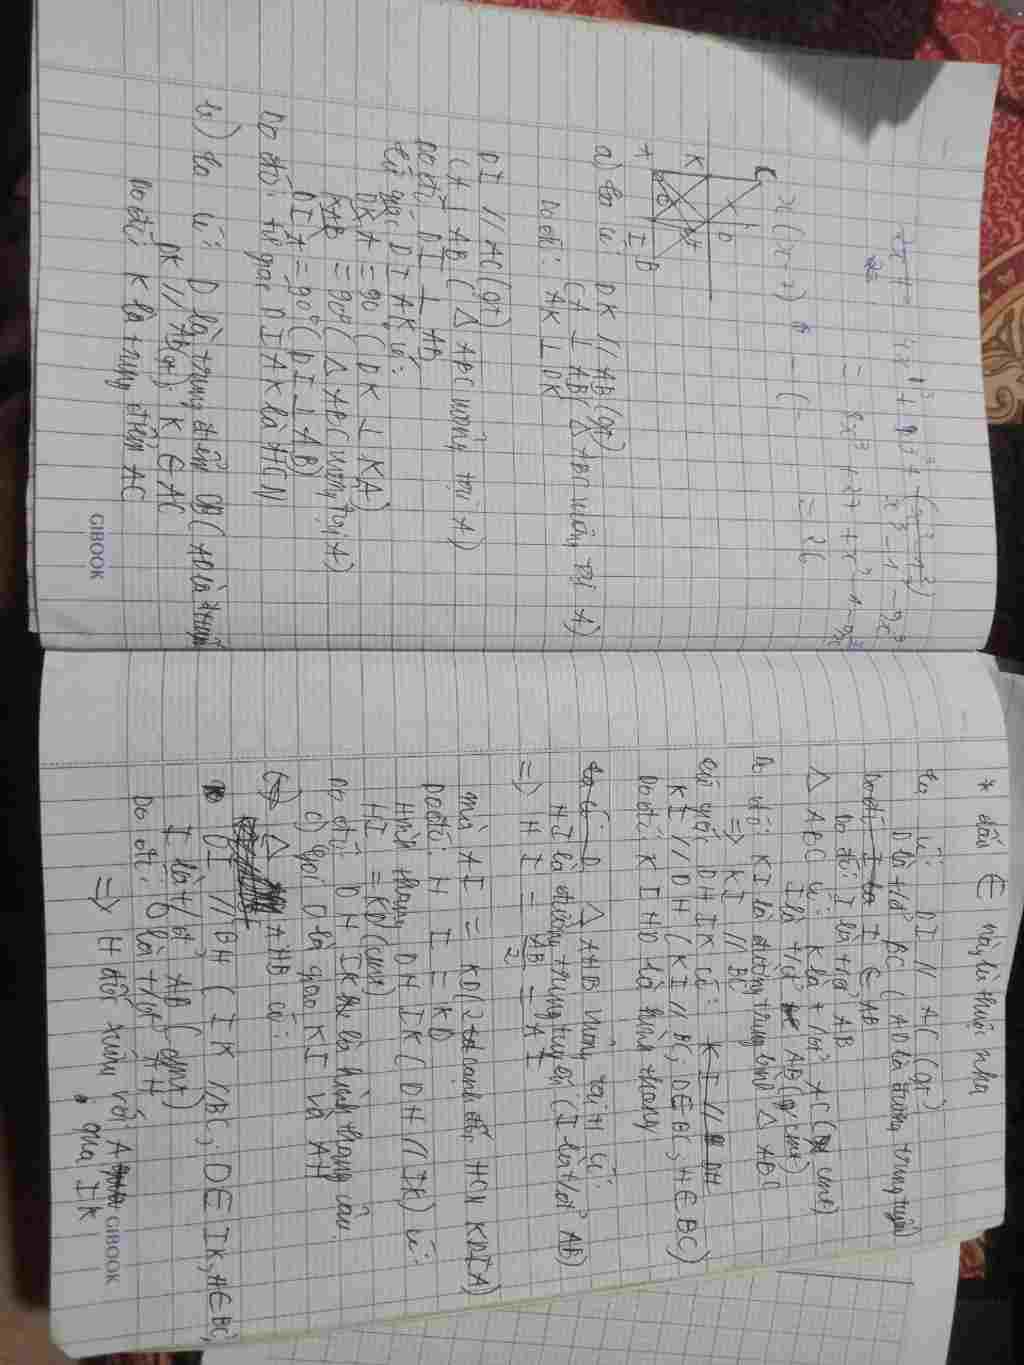 = 8x³ + 27 + x³ - 1 - 9x³
= 26
C
K
D
H
A
I
B
a) Ta có: DK // AB (gt)
CA ⊥ AB (△ ABC vuông tại A)
Do đó: AK ⊥ DK
DI // AC (gt)
CA ⊥ AB (△ ABC vuông tại A)
Do đó: DI ⊥ AB
Tứ giác DIAK có:
DKA = 90° (DK ⊥ KA)
= 90° (△ ABC vuông tại A)
DIA = 90° (DI ⊥ AB)
Do đó: tứ giác DIAK là HCN
b) Ta có: D là trung điểm BC (AD là trung
DK // AB (gt); K ∈ AC
Do đó: K là trung điểm AC
GIBOOK
* dấu ∈ này là thuộc nha
Ta có: DI // AC (gt)
D là t/đ² BC (AD là đường trung tuyến)
I ∈ AB
Do đó: I là t/đ² AB
△ ABC có: K là t/đ² AC (cmt)
I là t/đ² AB (cmt)
Do đó KI là đường trung bình △ ABC
=> KI // BC
Tứ giác DHIK có: KI // DH
KI // DH (KI // BC; D ∈ BC, H ∈ BC)
Do đó KIHD là hình thang
△ AHB vuông tại H có:
HI là đường trung tuyến (I là t/đ² AB)
=> HI = AB/2 = AI
mà AI = KD (2 cạnh đối, HCN KDIA)
Do đó: HI = KD
Hình thang DHIK (DH // IK) có:
HI = KD (cmt)
Do đó: DHIK là hình thang cân.
c) gọi O là giao KI và AH
△ AHB có:
OI // BH (IK // BC; O ∈ IK, H ∈ BC)
I là t/đ² AB (cmt)
Do đó: O là t/đ² AH
=> H đối xứng với A qua IK
GIBOOK